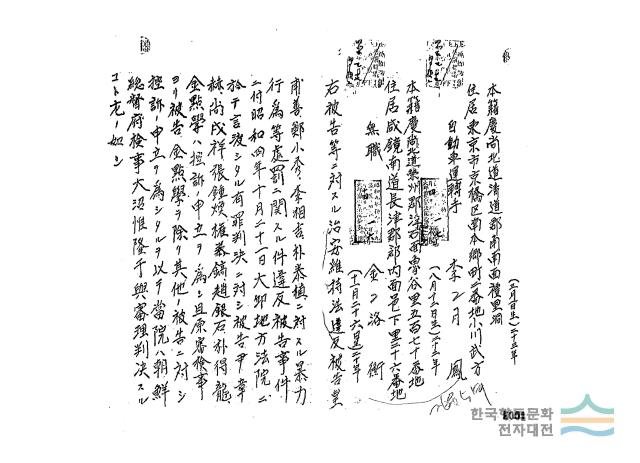 本籍慶尚北道清道郡南面種里洞
住居東京市京橋區南本郷町二番地小川武方
自動車運轉手
李月鳳
(五月日生)二十五年
本籍慶尚北道榮州郡
住居咸鏡南道長津郡郡内面邑下里三十六番地
無職
金洛衡
(十一月二十六日生)二十年
右被告等ニ對スル治安維持法違反被告並
甫善鄭小秀李相吉朴泰植ニ對スル暴力
行爲等處罰ニ關スル件違反被告事件
ニ付昭和四年十月二十一日大邱地方法院ニ
於テ言渡シタル有罪判決ニ對シ被告申章
赫尚戊祥張鍾煥權泰鎬趙銀石朴得龍
金點學ハ控訴ノ申立ヲ爲シ且原審檢事
ヨリ被告金點學ヲ除ク其他ノ被告ニ對シ
控訴ノ申立ヲ爲シタルヲ以テ當院ハ朝鮮
總督府檢事大沼惟隆干與審理判決スル
コト左ノ如シ
한국향토문화
전자대전